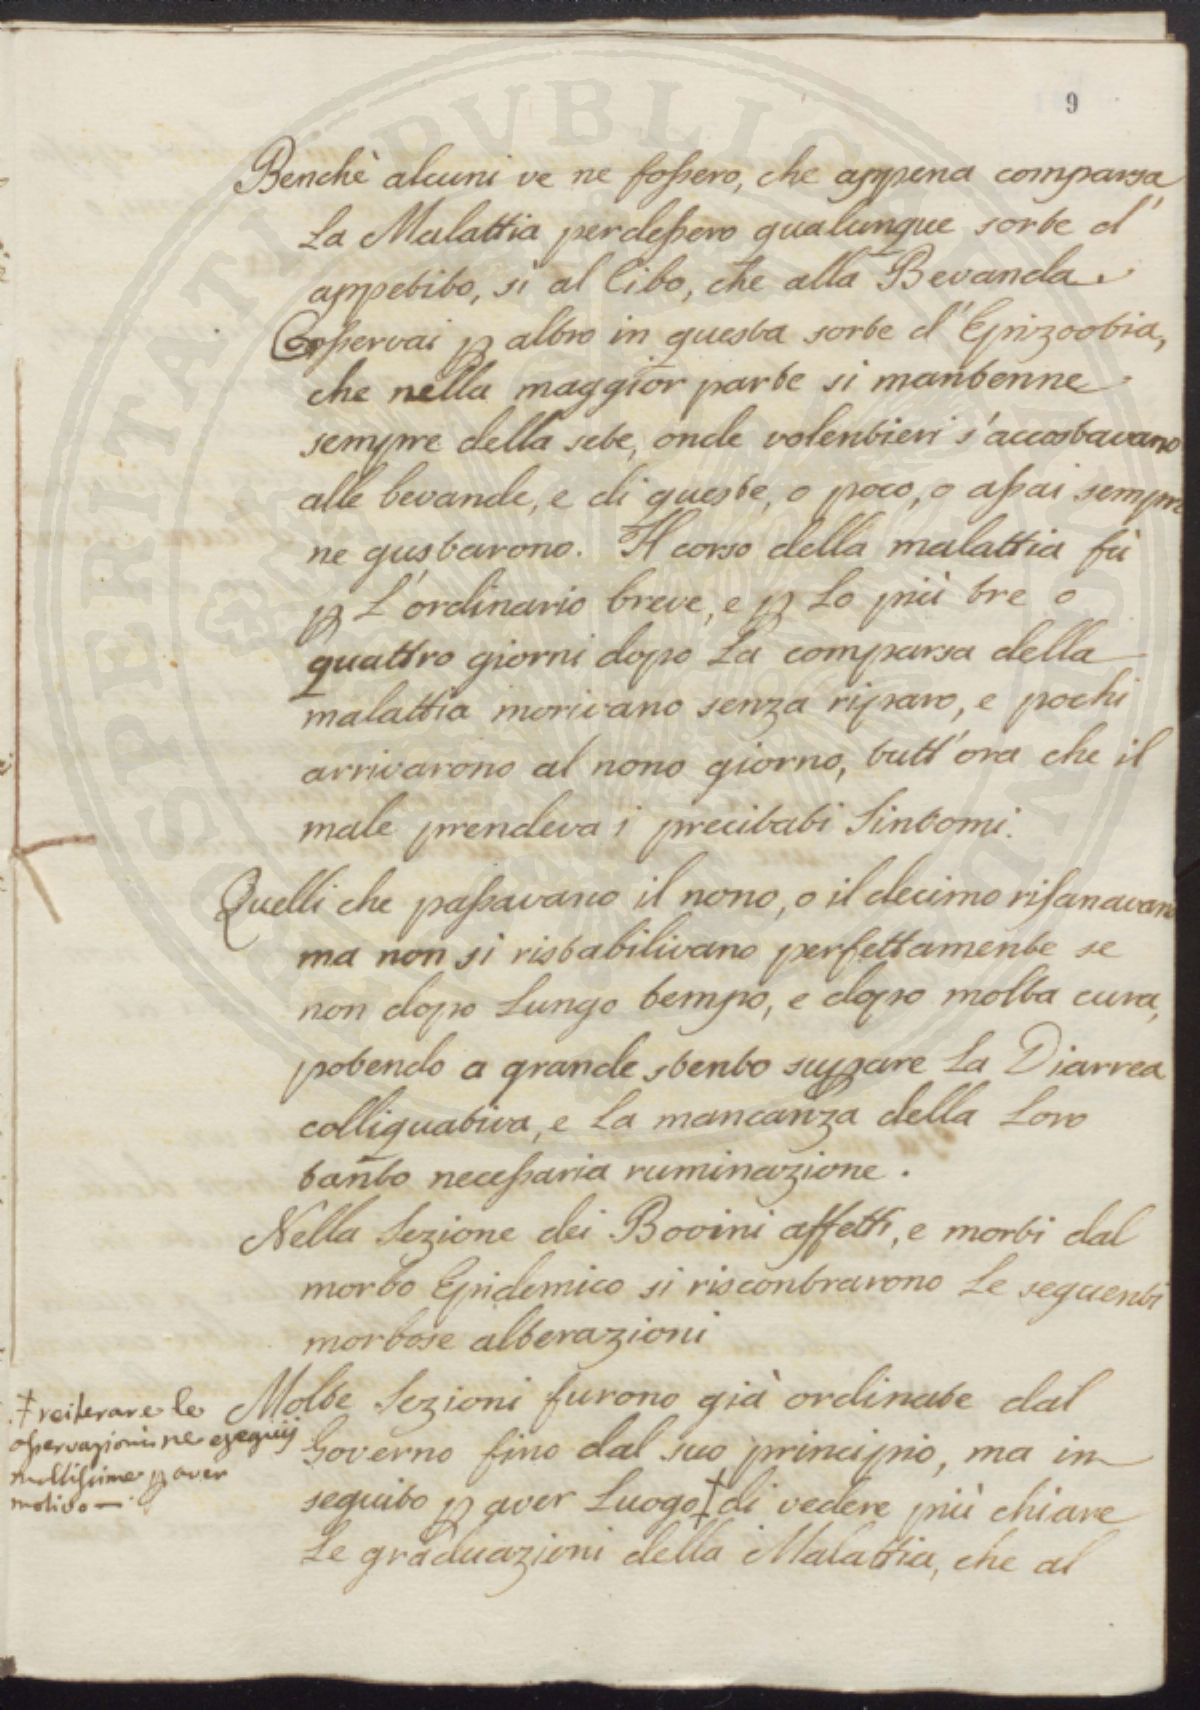 9
Benchè alcuni ve ne fossero, che appena comparsa
La Malattia perdessero qualunque sorte d'
appetito, sì al Cibo, che alla Bevanda.
Osservai p altro in questa sorte d'Epizootia,
che nella maggior parte si mantenne
sempre della sete, onde volentieri s'accostavano
alle bevande, e di queste, o poco, o assai sempre
ne gustarono. Il corso della malattia fù
p L'ordinario breve, e p Lo più tre o
quattro giorni dopo La comparsa della
malattia morivano senza riparo, e pochi
arrivarono al nono giorno, tutt'ora che il
male prendeva i precitati Sintomi.
Quelli che passavano il nono, o il decimo risanavano
ma non si ristabilivano perfettamente se
non dopo Lungo tempo, e dopo molta cura,
potendo a grande stento supare La Diarrea
colliquativa, e La mancanza della Loro
tanto necessaria ruminazione.
Nella Sezione dei Bovini affetti, e morti dal
morbo Epidemico si riscontrarono Le seguenti
morbose alterazioni
Molte Sezioni furono già ordinate dal
Governo fino dal suo principio, ma in
seguito p aver Luogo † di vedere più chiare
Le graduazioni della Malattia, che al
† reiterare le
osservazioni ne eseguij
moltissime p aver
motivo —
PROSPERITATI PVBLICAE